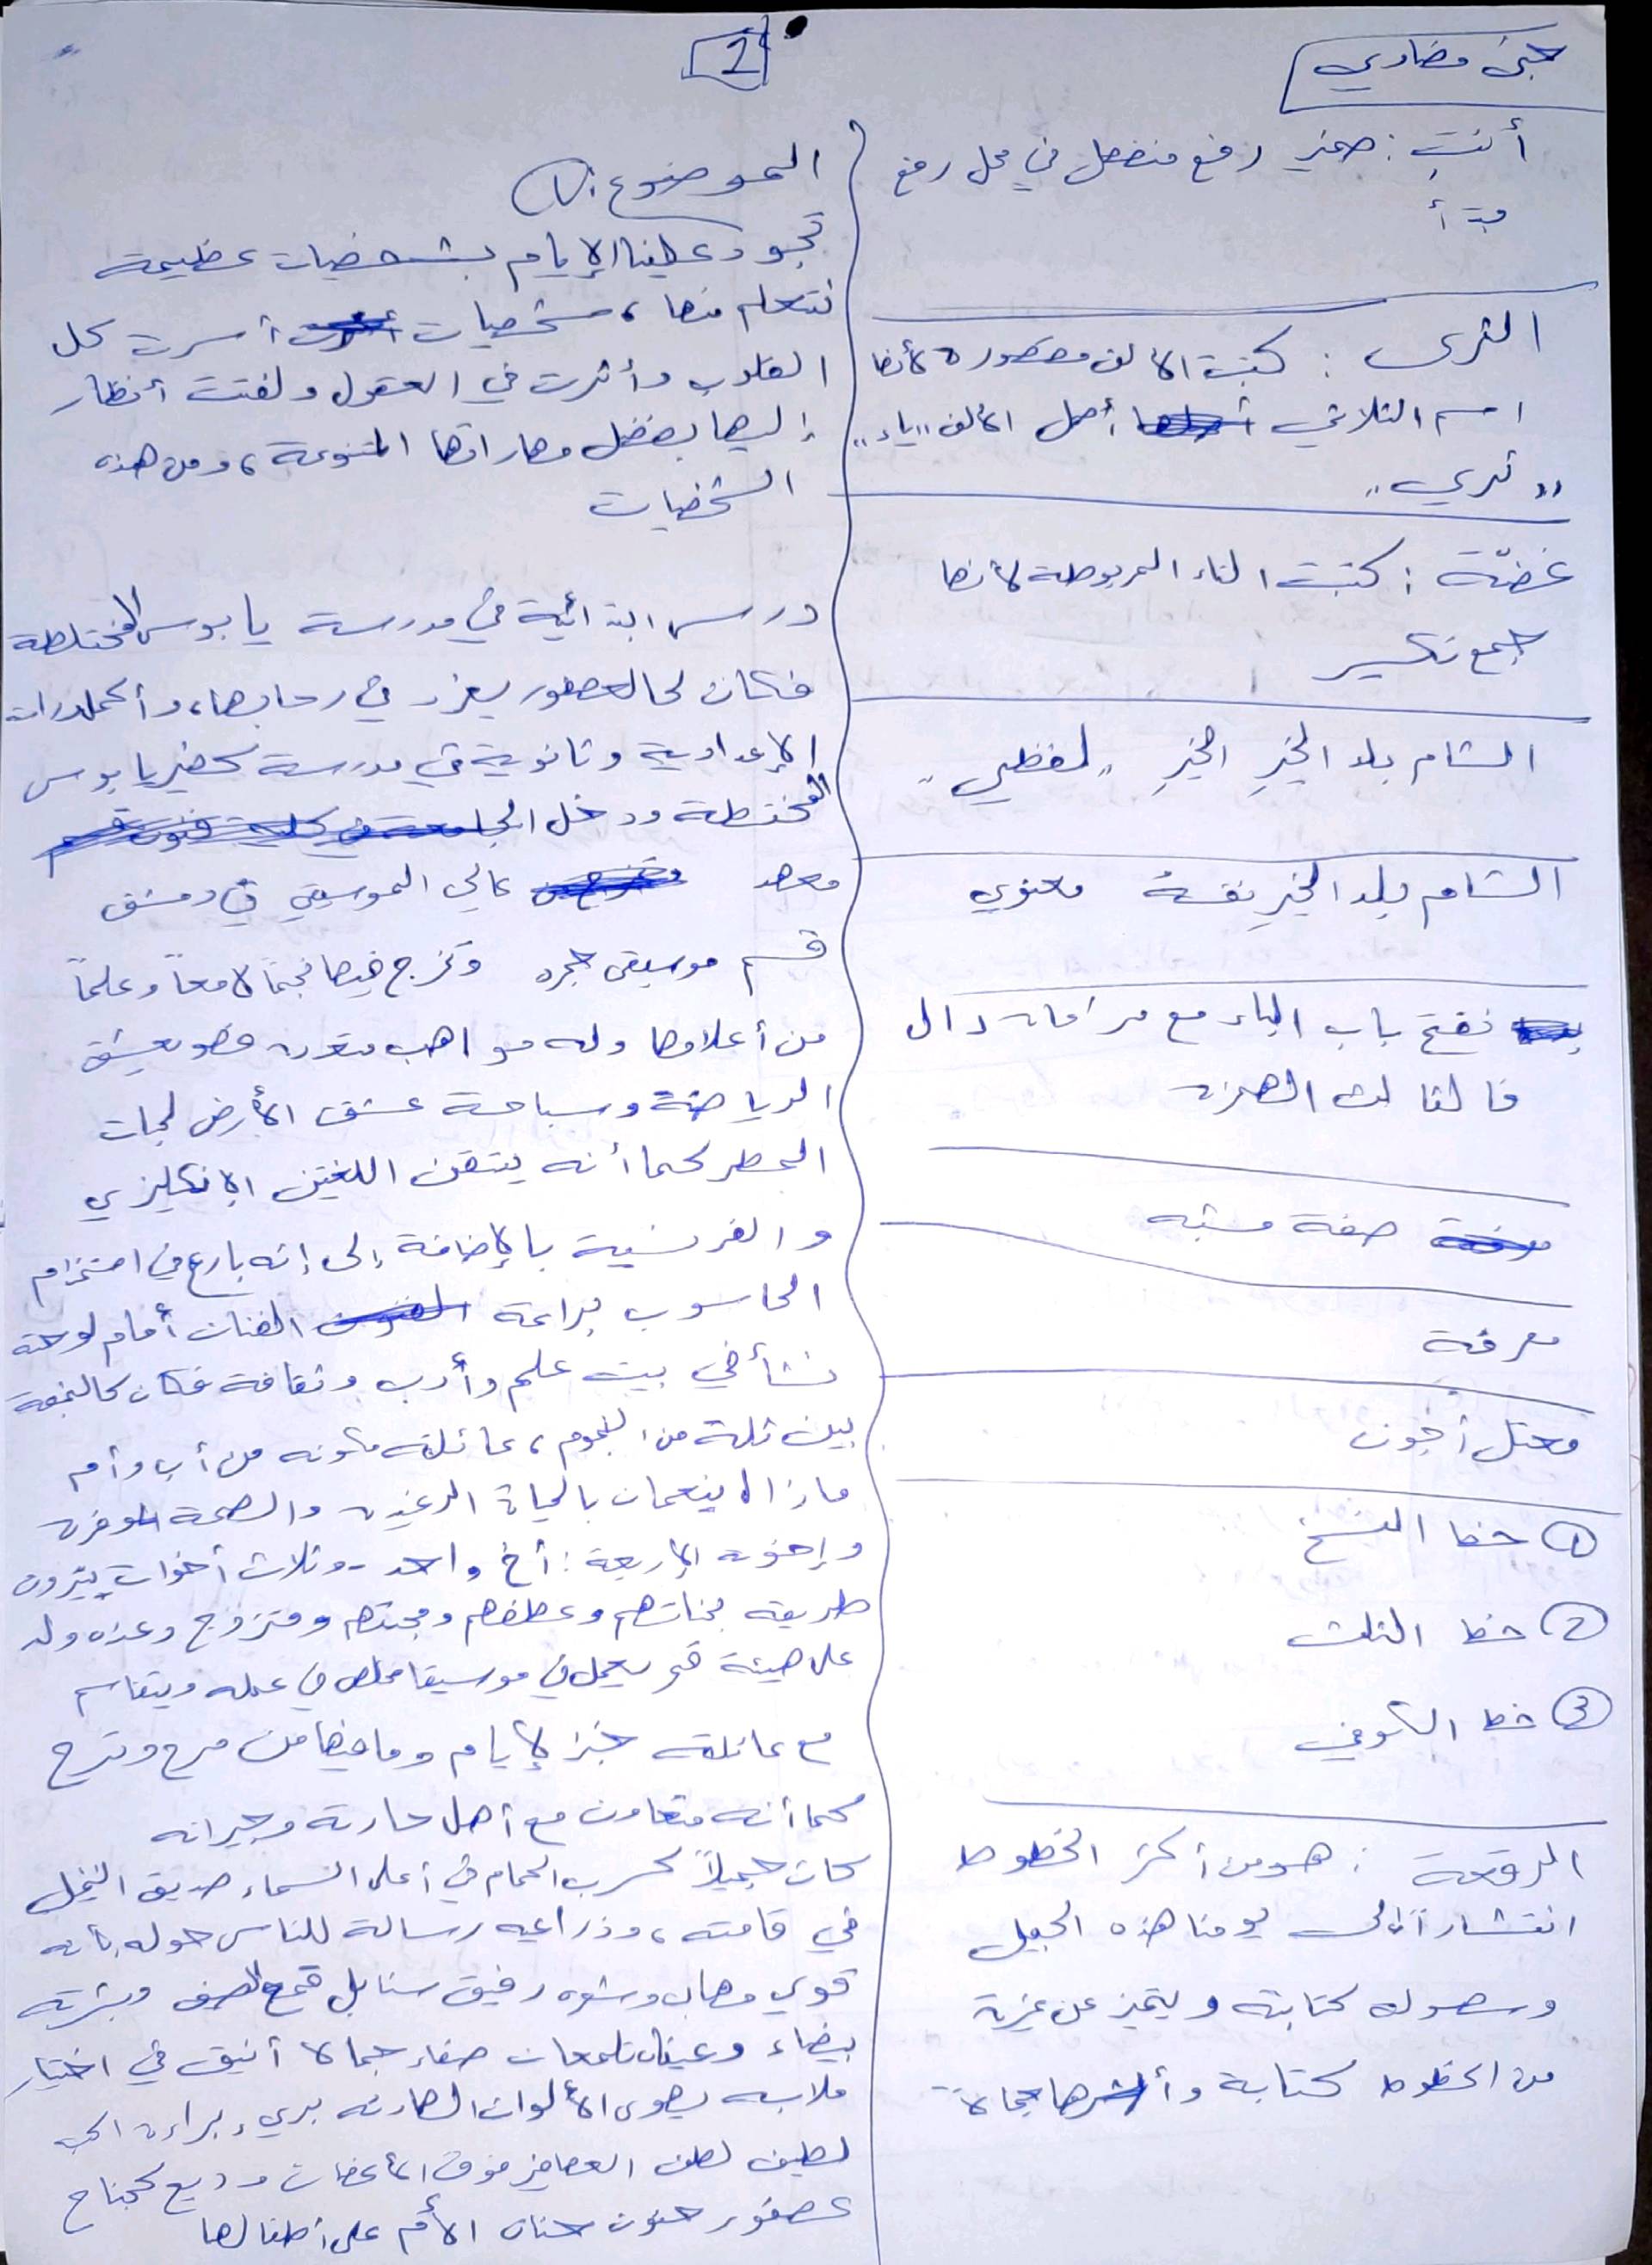 2
جنى مضاوي
أنتِ: ضمير رفع منفصل في محل رفع
مبتدأ
الثرى : كتبت الألف مقصورة لأنها
اسم الثلاثي أصل الألف "ياء"
"ثري"
غضّة : كتبت التاء المربوطة لأنها
جمع تكسير
الشام بلد الخيرِ الخيرِ "لفظي"
الشام بلد الخير نفسه معنوي
نفتح باب الباء مع مراعاة دال
فا لثا لث الهمزة
صفة مشبه
معرفة
معتل أجوف
① خط النسخ
② خط الثلث
③ خط الكوفي
الرقعة : هو من أكثر الخطوط
انتشاراً إلى يومنا هذه الجميل
وسهوله كتابته ويتميز عن غيرة
من الخطوط كتابة و جمالاً
الموضوع:
تجود علينا الإيام بشخصيات عظيمة
نتعلم منها، شخصيات أسرت كل
القلوب وأثرت في العقول ولفتت أنظار
إليها بفضل مهاراتها المتنوعة، ومن هذه
الشخصيات
درس ابتدائية في مدرسة يابوس المختلطة
فكان كالعصفور يغرد في رحابها، وأكمل دراسة
الإعدادية وثانوية في مدرسة كفير يابوس
المختطة ودخل
معهد عالي الموسيقى في دمشق
قسم موسيقى حجره وتخرج فيها نجماً لامعاً وعلماً
من أعلامها وله مواهب متعدد فهو يعشق
الرياضة وسباحة عشق الأرض لحبات
المطر كما أنه يتقن اللغتين الإنكليزي
والفرنسية بالإضافة إلى إنه بارع في استخدام
الحاسوب براعة الفنان أمام لوحته
نشأ في بيت علم وأدب وثقافة فكان كالنجمة
بين ثلة من النجوم، عائلته مكونه من أب وأم
مازالا ينعمان بالحياة الرغيدة والصحة الوفرة
وإخوته الاربعة: أخ واحد - وثلاث أخوات ينيرون
طريقه بحنانهم وعطفهم ومحبتهم ومتزوج وعنده ولد
على هيئة قمر يعمل في موسيقا مخلص في عمله ويتقاسم
مع عائلته خبز الإيام وما فيها من فرح وترح
كما أنه متعاون مع أهل حارته وجيرانه
كان جميلاً كسرب الحمام في أعلى السماء صديق النخيل
في قامته، وذراعيه رسالة للناس حوله بأنه
قوي مهاب وشعره رفيق سنابل قمح الصيف وبشرته
بيضاء وعينان تلمعان صفاء جمالا أنيق في اختيار
ملابسه يهوى الألوان الهادئه بريء براءة الحب
لطيف لطف العصافير فوق الأغصان وديع كجناح
عصفور حنون حنان الأم على أطفالها